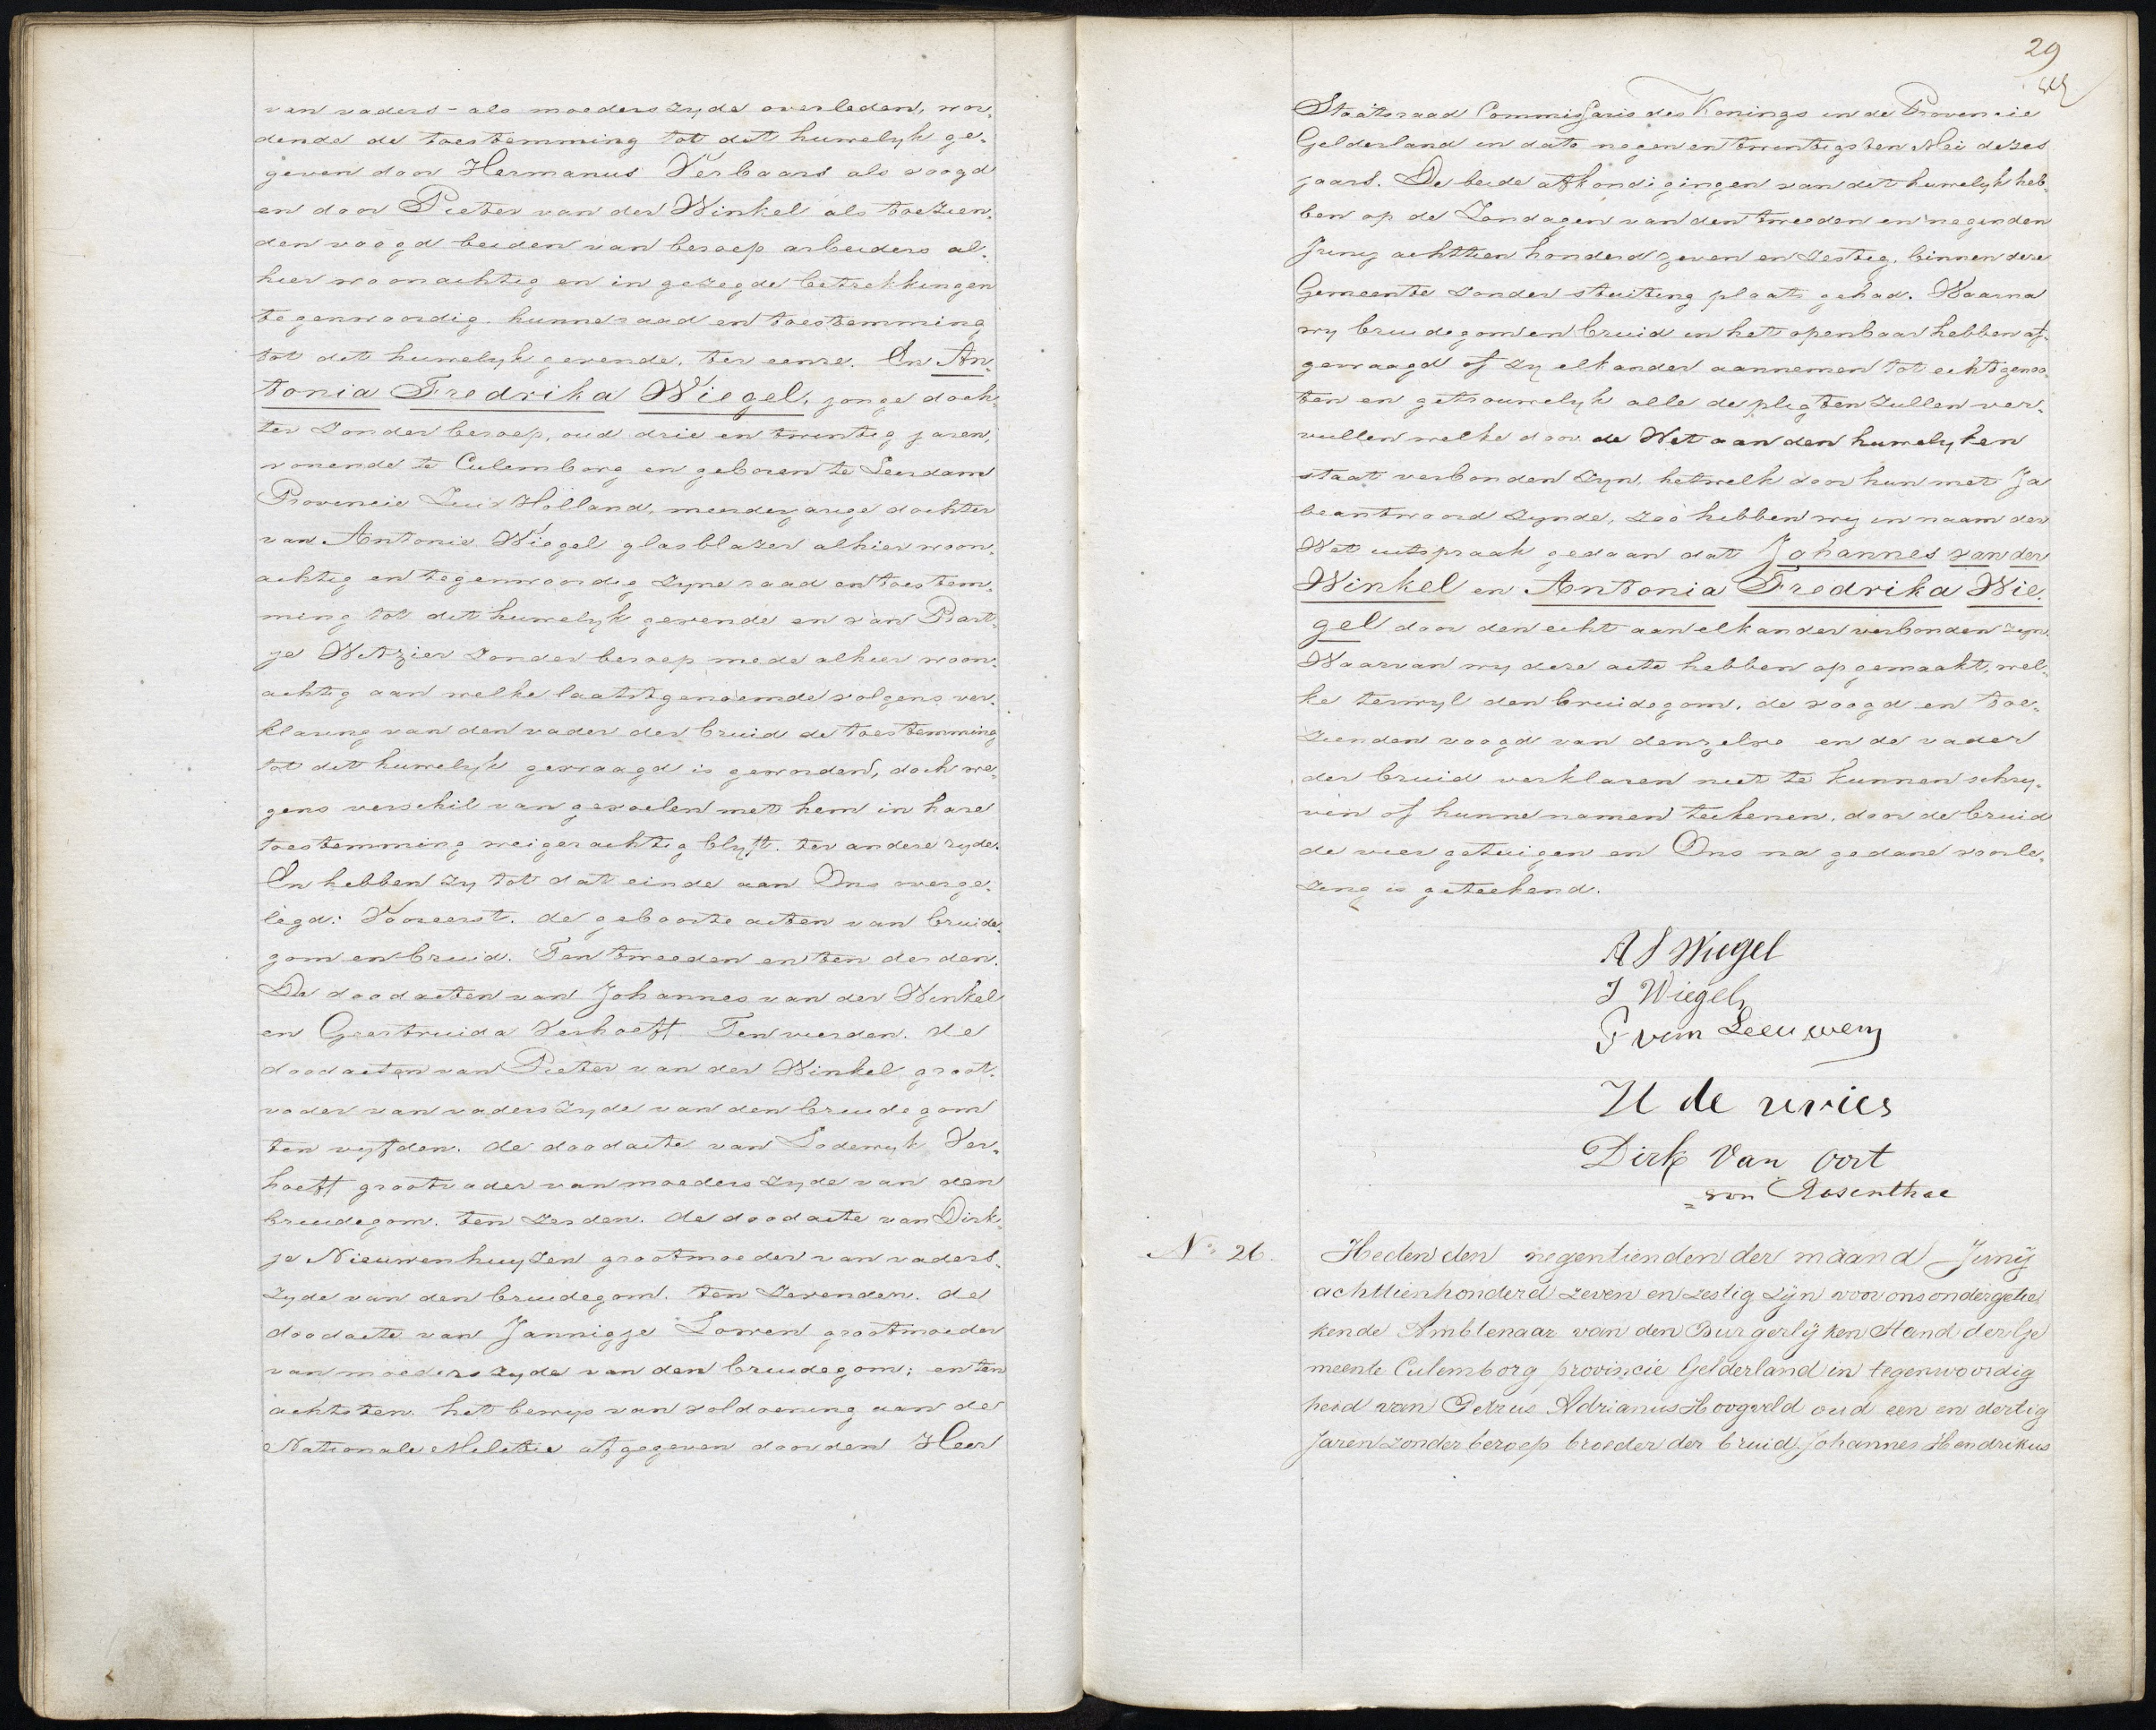 van vaders - als moeders zyde overleden, wor„
dende de toestemming tot dit huwelyk ge„
geven door Hermanus Verbaars als voogd
en door Pieter van der Winkel als toezien„
den voogd beiden van beroep arbeiders al„
hier woonachtig en in gezegde betrekkingen
tegenwoordig. hunne raad en toestemming
tot dit huwelyk gevende, ter eenre. En An„
tonia Fredrika Wiegel, jonge doch„
ter zonder beroep, oud drie en twintig jaren,
wonende te Culemborg en geboren te Leerdam
Provincie Zuid Holland, meerderjarige dochter
van Antonie Wiegel glasblazer alhier woon„
achtig en tegenwoordig zyne raad en toestem„
ming tot dit huwelyk gevende en van Bart„
je Witzier zonder beroep mede alhier woon„
achtig aan welke laatstgenoemde volgens ver„
klaring van den vader der bruid de toestemming
tot dit huwelyk gevraagd is geworden, doch we„
gens verschil van gevoelen met hem in hare
toestemming weigerachtig blyft. ter andere zyde.
En hebben zy tot dat einde aan Ons overge„
legd: Vooreerst. de geboorte acten van bruide„
gom en bruid. Ten tweeden en ten derden.
De doodacten van Johannes van der Winkel
en Geertruida Verhoeff. Ten vierden. de
doodacten van Pieter van der Winkel groot„
vader van vaders zyde van den bruidegom
ten vyfden. de doodacte van Lodewyk Ver„
hoeff grootvader van moeders zyde van den
bruidegom. ten zesden. de doodacte van Dirk„
je Nieuwenhuyzen grootmoeder van vaders„
zyde van den bruidegom. ten zevenden. de
doodacte van Jannigje Lowen grootmoeder
van moeders zyde van den bruidegom; en ten
achtsten. het bewys van voldoening aan de
Nationale Militie afgegeven door den Heer
29
Staatsraad Commissaris des Konings in de Provincie
Gelderland in dato negen en twintigsten Mei dezes
jaars. De beide afkondigingen van dit huwelyk heb„
ben op de Zondagen van den tweeden en negenden
Juny achttien honderd zeven en zestig, binnen deze
Gemeente zonder stuiting plaats gehad. Waarna
wy bruidegom en bruid in het openbaar hebben af„
gevraagd of zy elkander aannemen tot echtgenoo„
ten en getrouwelyk alle de pligten zullen ver„
vullen welke door de Wet aan den huwelyken
staat verbonden zyn, hetwelk door hun met Ja
beantwoord zynde, zoo hebben wy in naam der
Wet uitspraak gedaan dat Johannes van der
Winkel en Antonia Fredrika Wie„
gel door den echt aan elkander verbonden zyn.
Waarvan wy deze acte hebben opgemaakt, wel„
ke terwyl den bruidegom, de voogd en toe„
zienden voogd van denzelve en de vader
der bruid verklaren niet te kunnen schry„
ven of hunne namen teekenen, door de bruid
de vier getuigen en Ons na gedane voorle„
zing is geteekend.
A F Wiegel
J Wiegel
P van Leeuwen
H de vries
Dirk Van Oort
von Rosenthal
No. 26.
Heden den negentienden der maand Junij
achttienhonderd zeven en zestig zijn voor ons ondergetee
kende Ambtenaar van den Burgerlijken Stand der Ge
meente Culemborg provincie Gelderland in tegenwoordig
heid van Petrus Adrianus Hoogveld oud een en dertig
Jaren zonder beroep broeder der bruid, Johannes Hendrikus